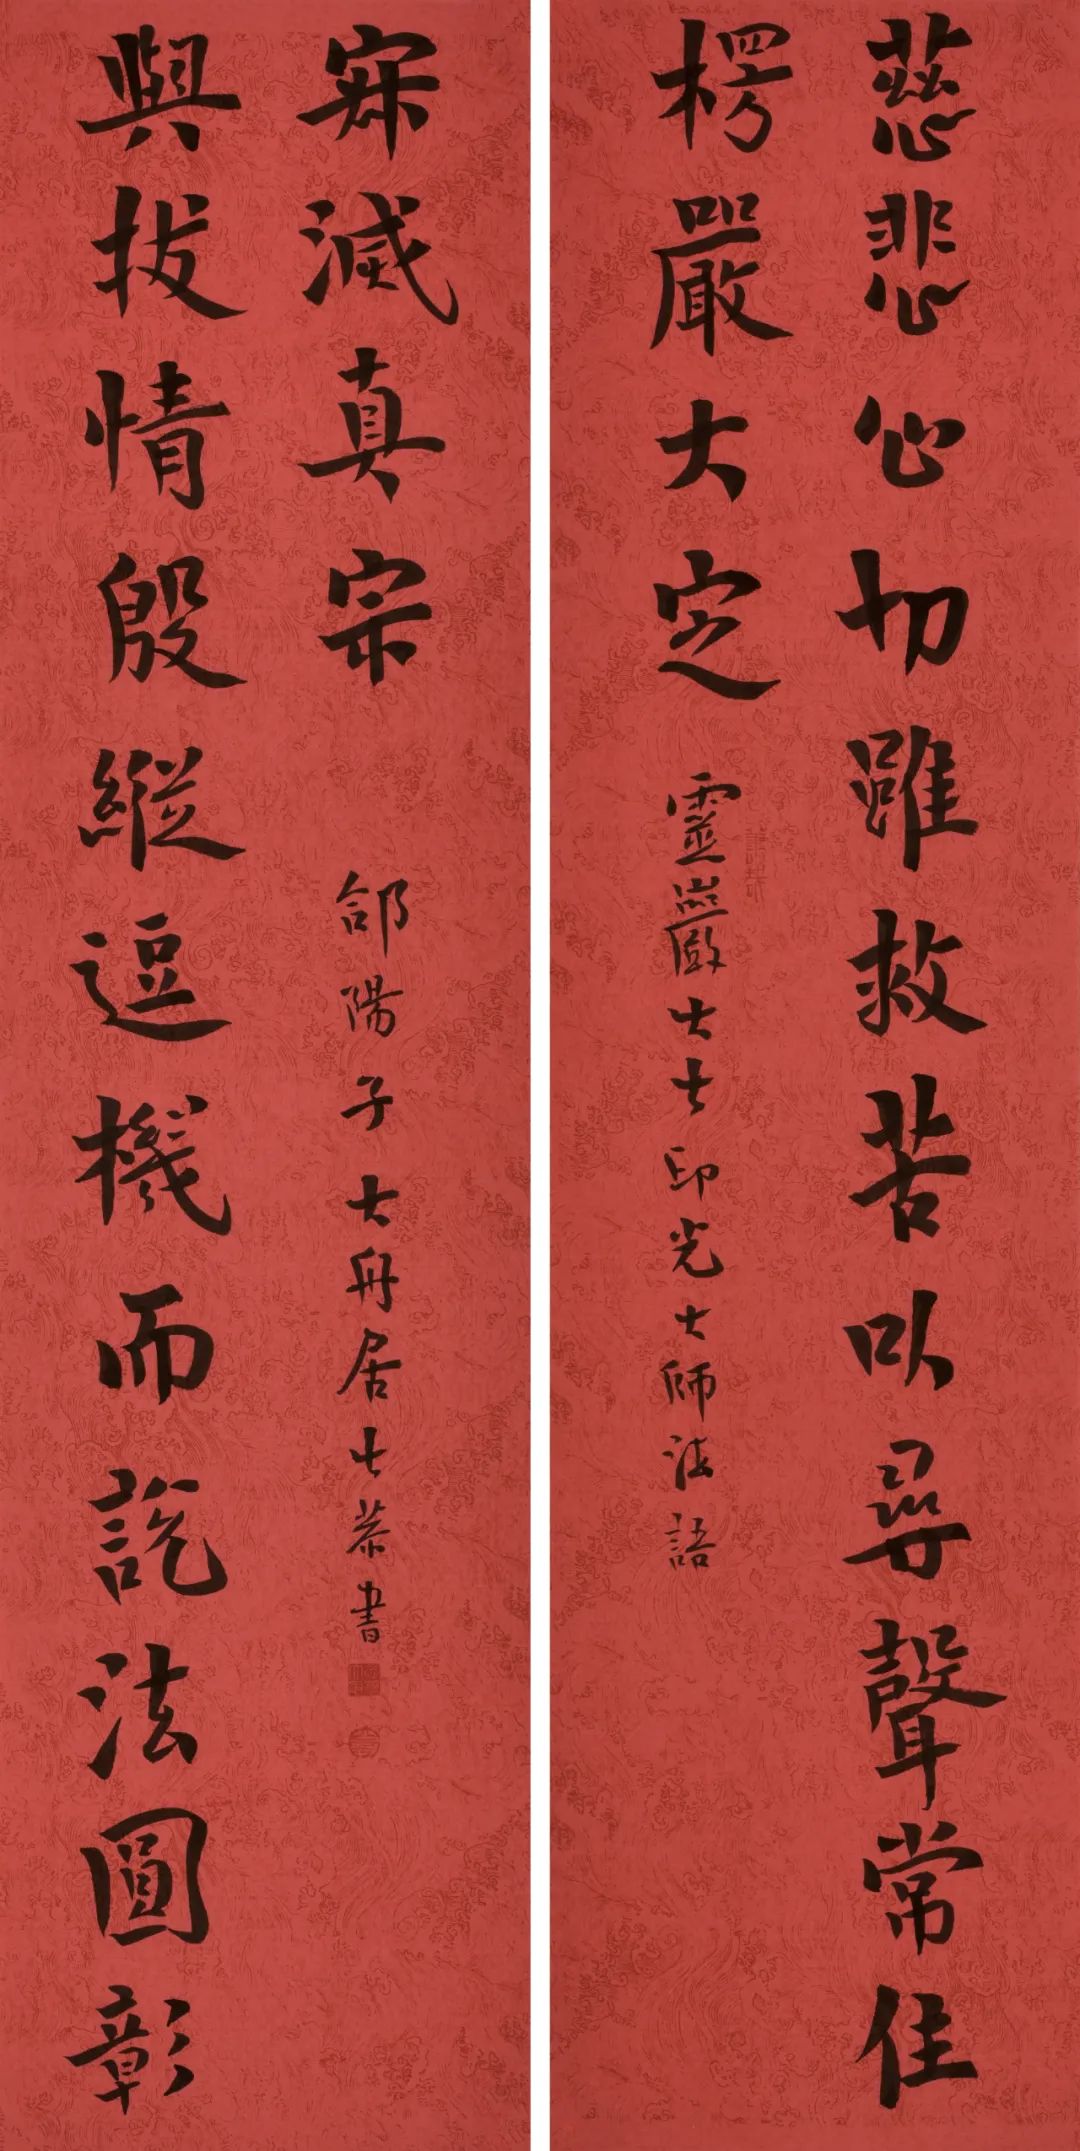 慈悲心切雖救苦以尋聲常住
楞嚴大定
靈巖大士印光大師法語
與拔情殷縱逗機而說法圓彰
寂滅真宗
郃陽子大舟居士恭書